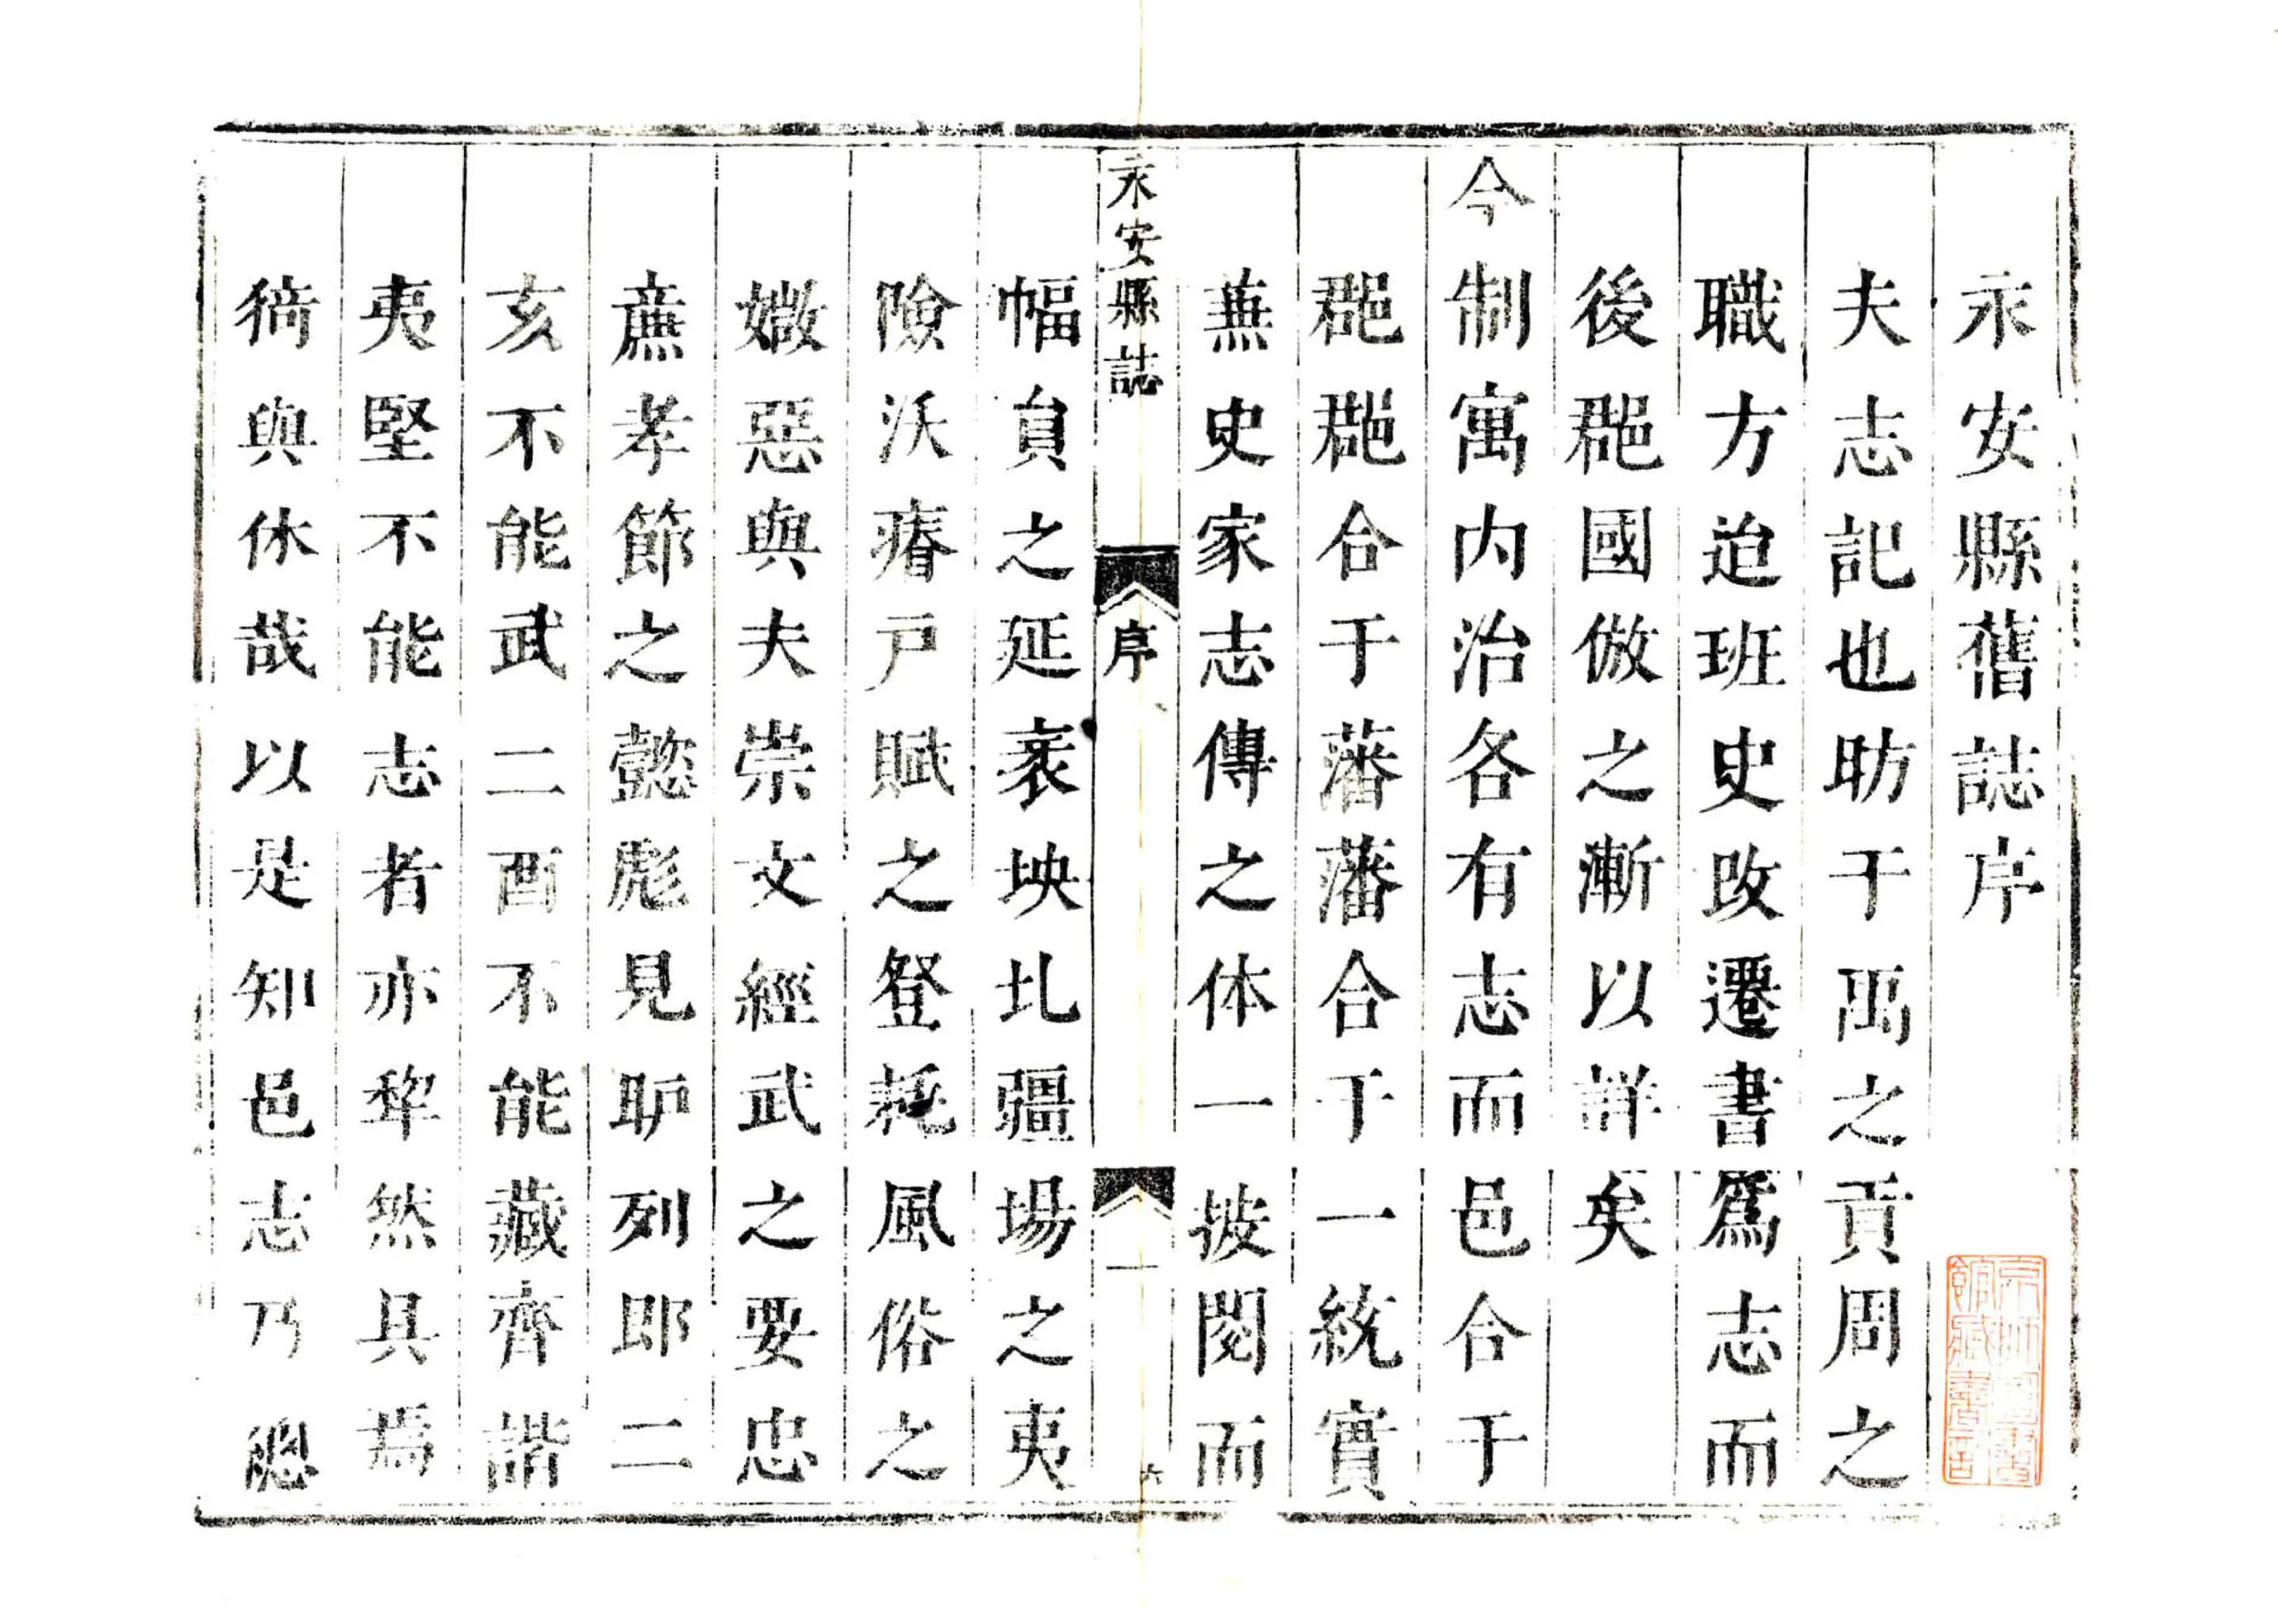 永安縣舊誌序
夫志記也昉于禹之貢周之
職方迨班史攺遷書爲志而
後郡國倣之漸以詳矣
今制寓内治各有志而邑合于
郡郡合于藩藩合于一統實
兼史家志傳之体一披閱而
永安縣誌
序
一
幅員之延袤坱圠疆場之夷
險沃瘠戸賦之登耗風俗之
媺惡與夫崇文經武之要忠
廉孝節之懿彪見胪列卽二
亥不能武二酉不能藏齊諧
夷堅不能志者亦犂然具焉
猗與休哉以是知邑志乃
京師圖書
館藏書記